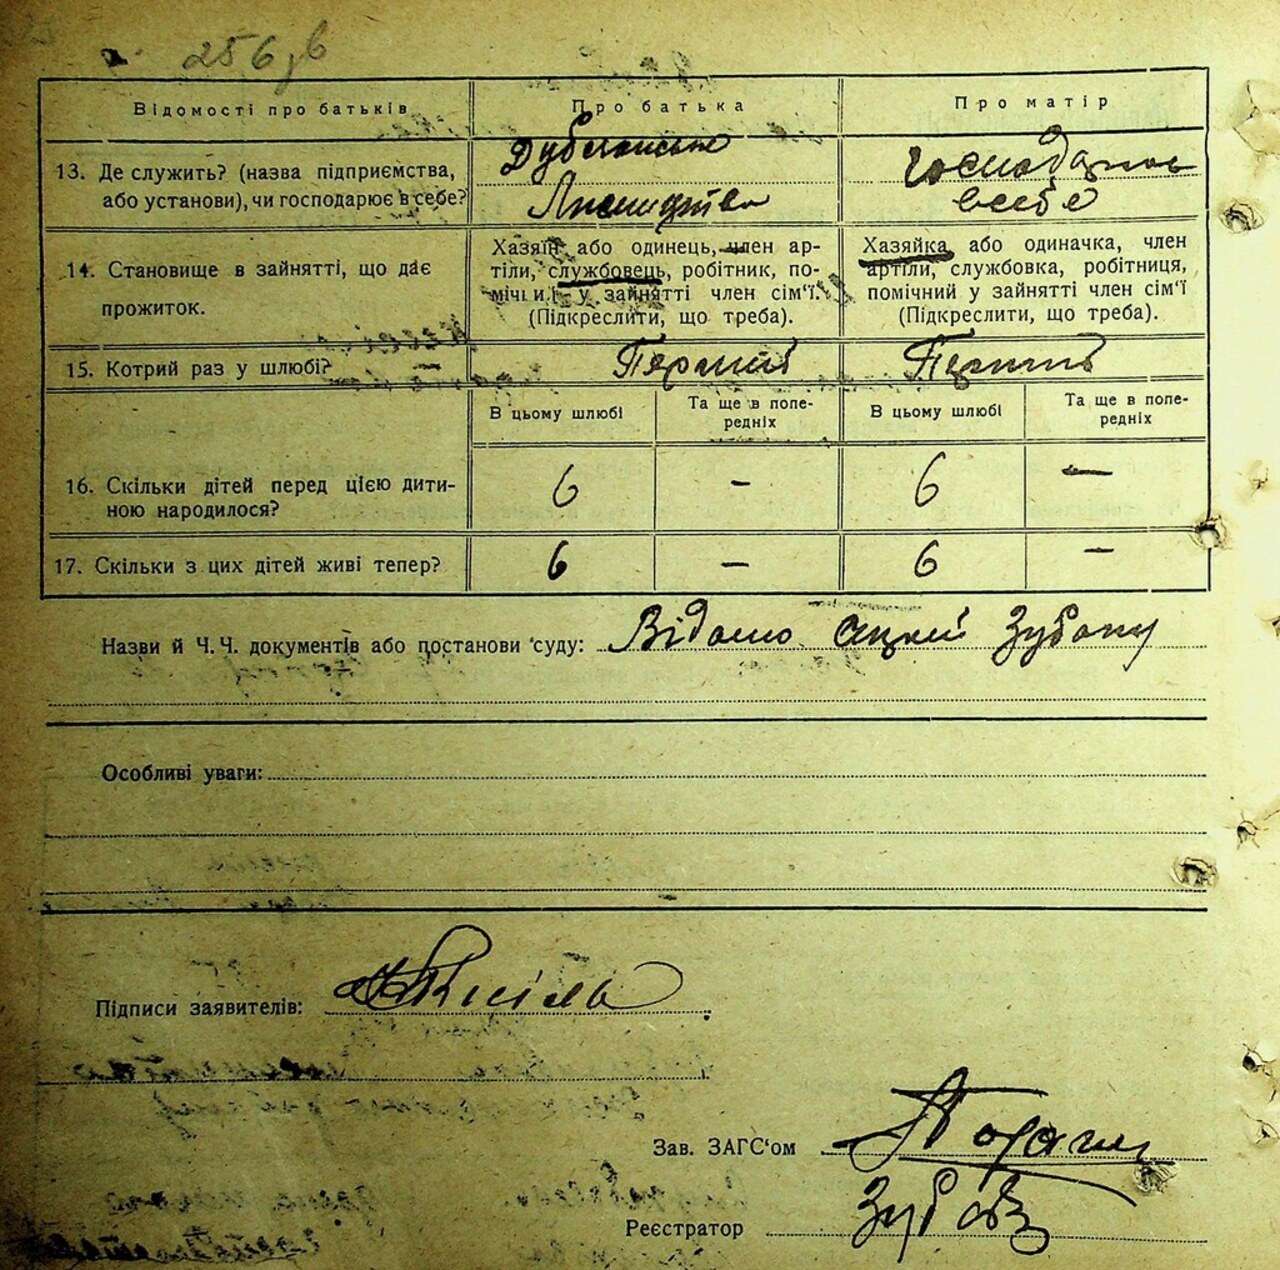 256 зв
Відомості про батьків
Про батька
Про матір
13. Де служить? (назва підприємства,
або установи), чи господарює в себе?
Дублянське
Лісництво
Господарює
в себе
14. Становище в зайнятті, що дає
прожиток.
Хазяїн або одинець, член ар-
тіли, службовець, робітник, по-
мічний у зайнятті член сім'ї.
(Підкреслити, що треба).
Хазяйка або одиначка, член
артіли, службовка, робітниця,
помічний у зайнятті член сім'ї
(Підкреслити, що треба).
15. Котрий раз у шлюбі?
Перший
Перший
В цьому шлюбі
Та ще в попе-
редніх
В цьому шлюбі
Та ще в попе-
редніх
16. Скільки дітей перед цією дити-
ною народилося?
6 - 6 -
17. Скільки з цих дітей живі тепер?
6 - 6 -
Назви й Ч. Ч. документів або постанови суду: Відомо Зубову
Особливі уваги:
Підписи заявителів: Кисіль
Зав. ЗАГС'ом
Реєстратор Зубов